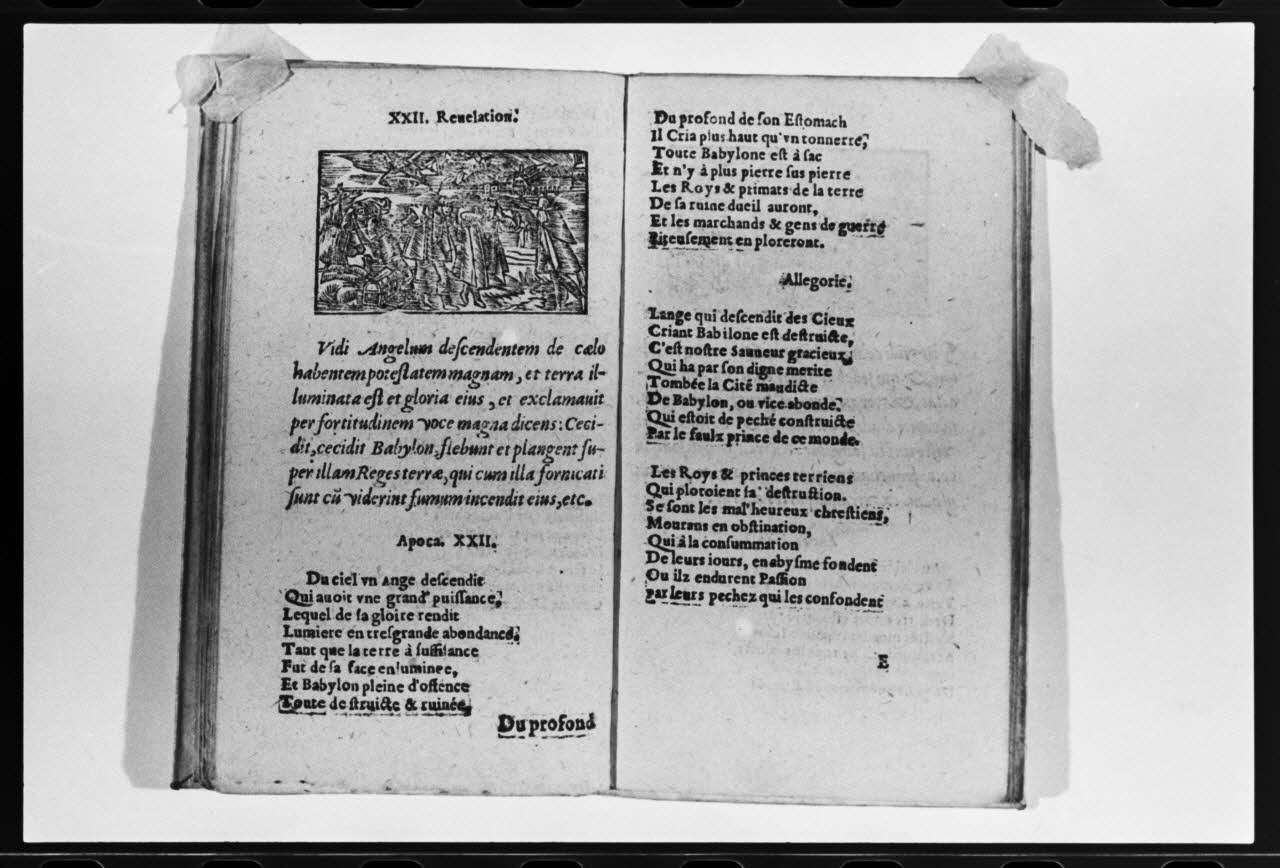 XXII. Reuelation.
Vidi Angelum deſcendentem de cælo
habentem poteſtatem magnam, et terra il-
luminata eſt et gloria eius, et exclamauit
per fortitudinem voce magna dicens: Ceci-
dit, cecidit Babylon, flebunt et plangent ſu-
per illam Reges terræ, qui cum illa fornicati
ſunt cū viderint fumum incendit eius, etc.
Apoca. XXII.
Du ciel vn Ange deſcendit
Qui auoit vne grand' puiſſance,
Lequel de ſa gloire rendit
Lumiere en treſgrande abondance,
Tant que la terre à ſuffiſance
Fut de ſa face en'luminee,
Et Babylon pleine d'offence
Toute de ſtruicte & ruinée,
Du profond
Du profond de ſon Eſtomach
Il Cria plus haut qu'vn tonnerre,
Toute Babylone eſt à ſac
Et n'y à plus pierre ſus pierre
Les Roys & primats de la terre
De ſa ruine dueil auront,
Et les marchands & gens de guerre
Piteuſement en ploreront.
Allegorie.
Lange qui deſcendit des Cieux
Criant Babilone eſt deſtruicte,
C'eſt noſtre Sauueur gracieux,
Qui ha par ſon digne merite
Tombée la Cité maudicte
De Babylon, ou vice abonde.
Qui eſtoit de peché conſtruicte
Par le faulx prince de ce monde.
Les Roys & princes terriens
Qui ploroient ſa' deſtruſtion.
Se ſont les mal'heureux chreſtiens,
Mourans en obſtination,
Qui à la conſummation
De leurs iours, en abyſme fondent
Ou ilz endurent Paſſion
Par leurs pechez qui les confondent
E